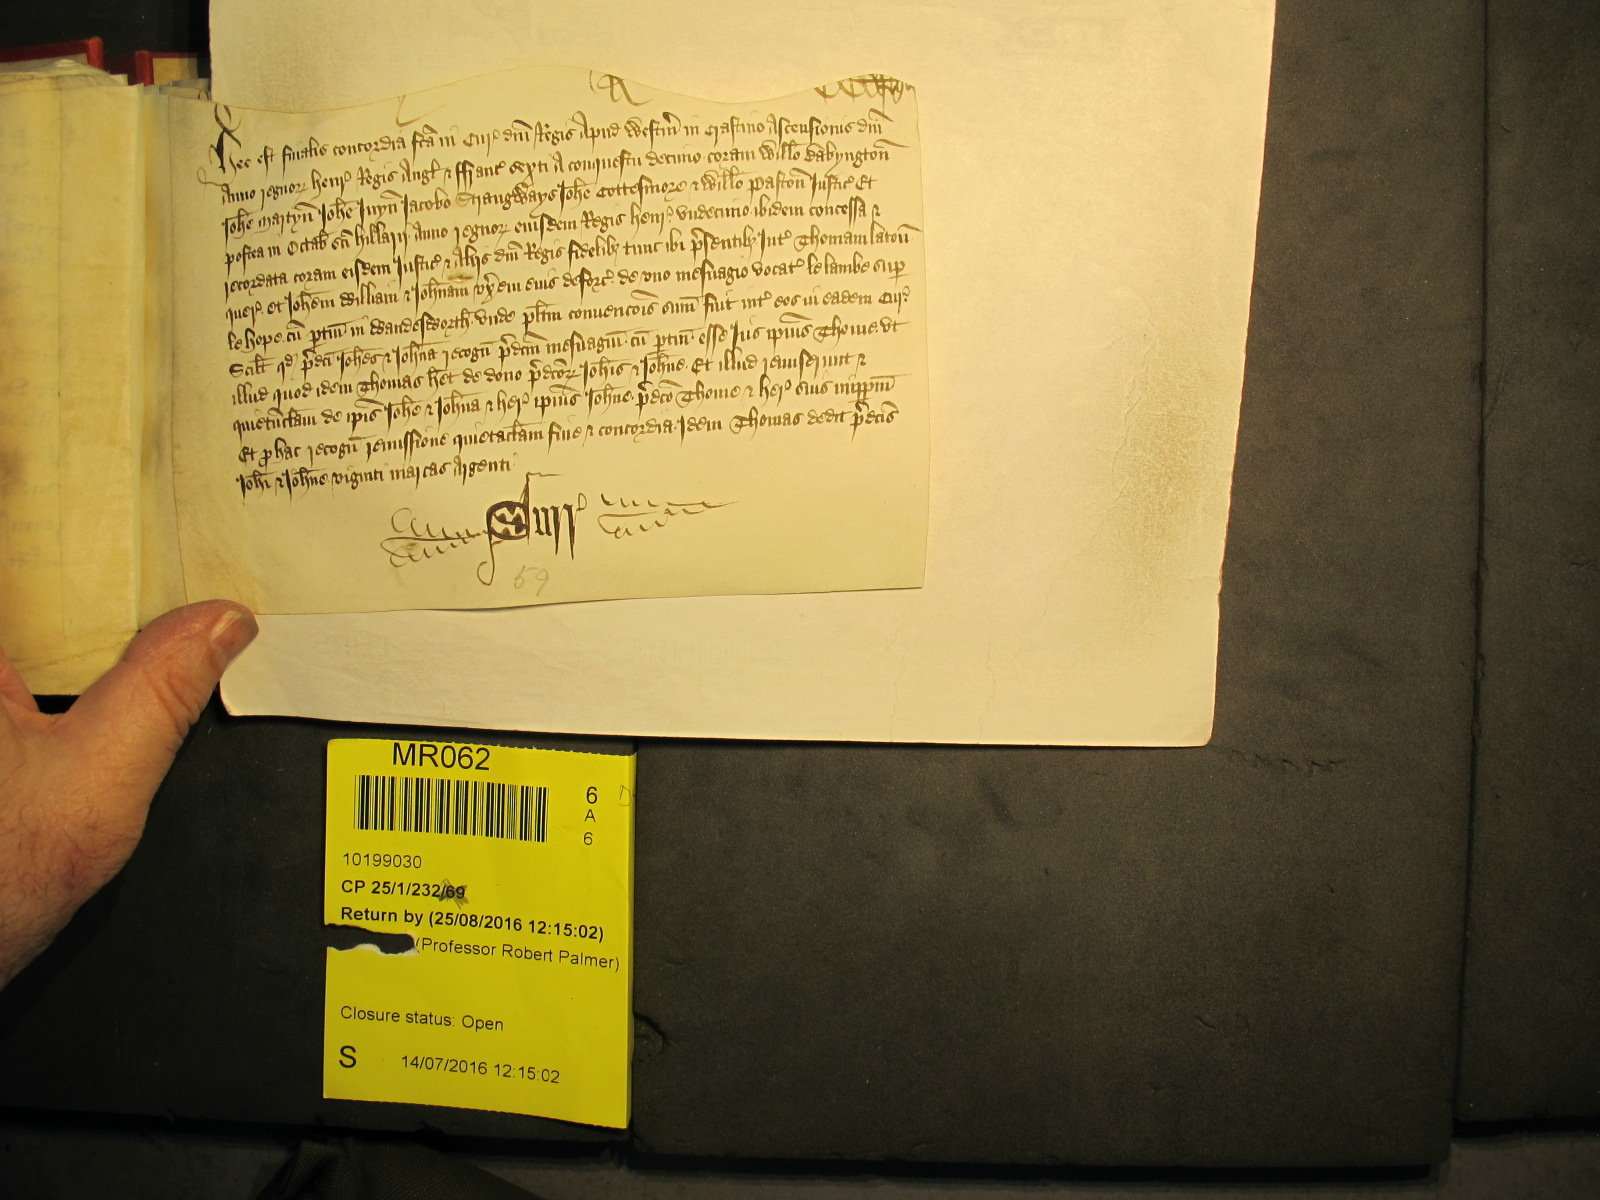 Hec est finalis concordia fcā in Cur' dñi Regis Apud Westm̄ in Crastino Ascensionis dñi
Anno regnoꝝ Henr' Regis Angł & ffranc' Sexti A conquestu decimo coram Willo Babyngton̄
Joħe Martyn̄ Joħe Juyn̄ Jacobo Strangways Joħe Cottesmore & Willo Paston̄ Justic' Et
postea in Octab̄ sc̄i Hillarij Anno regnoꝝ eiusdem Regis Henr' undecimo ibidem concessa &
recordata coram eisdem Justic' & Alijs dñi Regis fidelib3 tunc ibi p̄sentib3 Int' Thomam Latoũ
quer' et Joħem William & Joħnam vx̄em eius deforc' de vno mesuagio vocat' le lambe sup̱
le hope cū ptin̄ in Wandesworth vnde plīm convencōis sum̄ fuit int' eos in eadem Cur'
Sciłt qd p̄dc̄i Joħes & Joħna recogn̄ p̄dc̄m mesuagiū cū ptin̄ esse Jus ip̄ius Thome vt
illud quod idem Thomas ħet de dono p̄dc̄oꝝ Joħis & Joħne Et illud remiserunt &
quietūclam̄ de ip̄is Joħe & Joħna & her' ip̄ius Joħne p̄dc̄o Thome & her' suis imppm̄
Et p hac recogn̄ remissione quietaclam̄ fine & concordia idem Thomas dedit p̄dc̄is
Joħi & Joħne viginti marcas Argenti
Surr'
59
MR062
6
A
6
10199030
CP 25/1/232/69
Return by (25/08/2016 12:15:02)
(Professor Robert Palmer)
Closure status: Open
S 14/07/2016 12:15:02